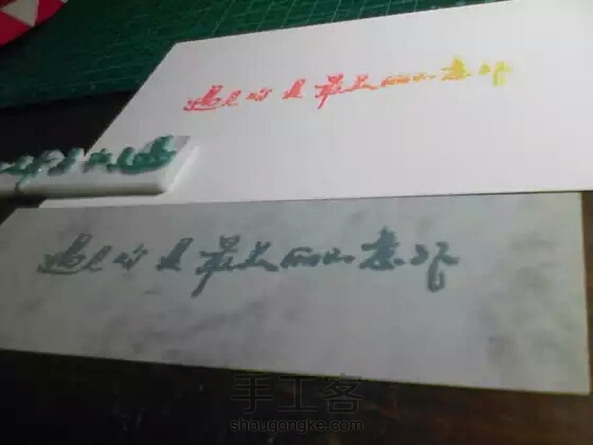 遇见你是最美丽的意外
遇见你是最美丽的意外
手工客
shougongke.com